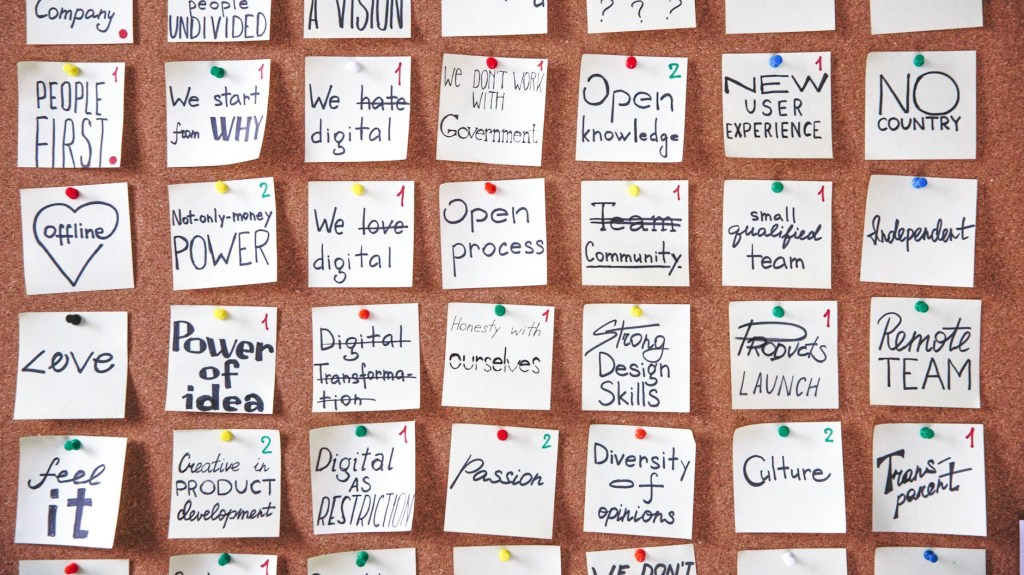 Company
people
UNDIVIDED
A VISION
? ? ?
1
PEOPLE
FIRST
1
We start
from WHY
1
We hate
digital
1
WE DON'T WORK
WITH
Government
2
Open
knowledge
1
NEW
USER
EXPERIENCE
NO
COUNTRY
offline
2
Not-only-money
POWER
1
We love
digital
Open
process
1
Team
Community
1
small
qualified
team
Independent
Love
1
Power
of
idea
Digital
Transforma-
tion
1
Honesty with
ourselves
Strong
Design
Skills
1
Products
LAUNCH
Remote
TEAM
feel
it
2
Creative in
PRODUCT
development
1
Digital
AS
RESTRICTION
2
Passion
Diversity
of
opinions
2
Culture
1
Trans-
parent
1
WE DON'T